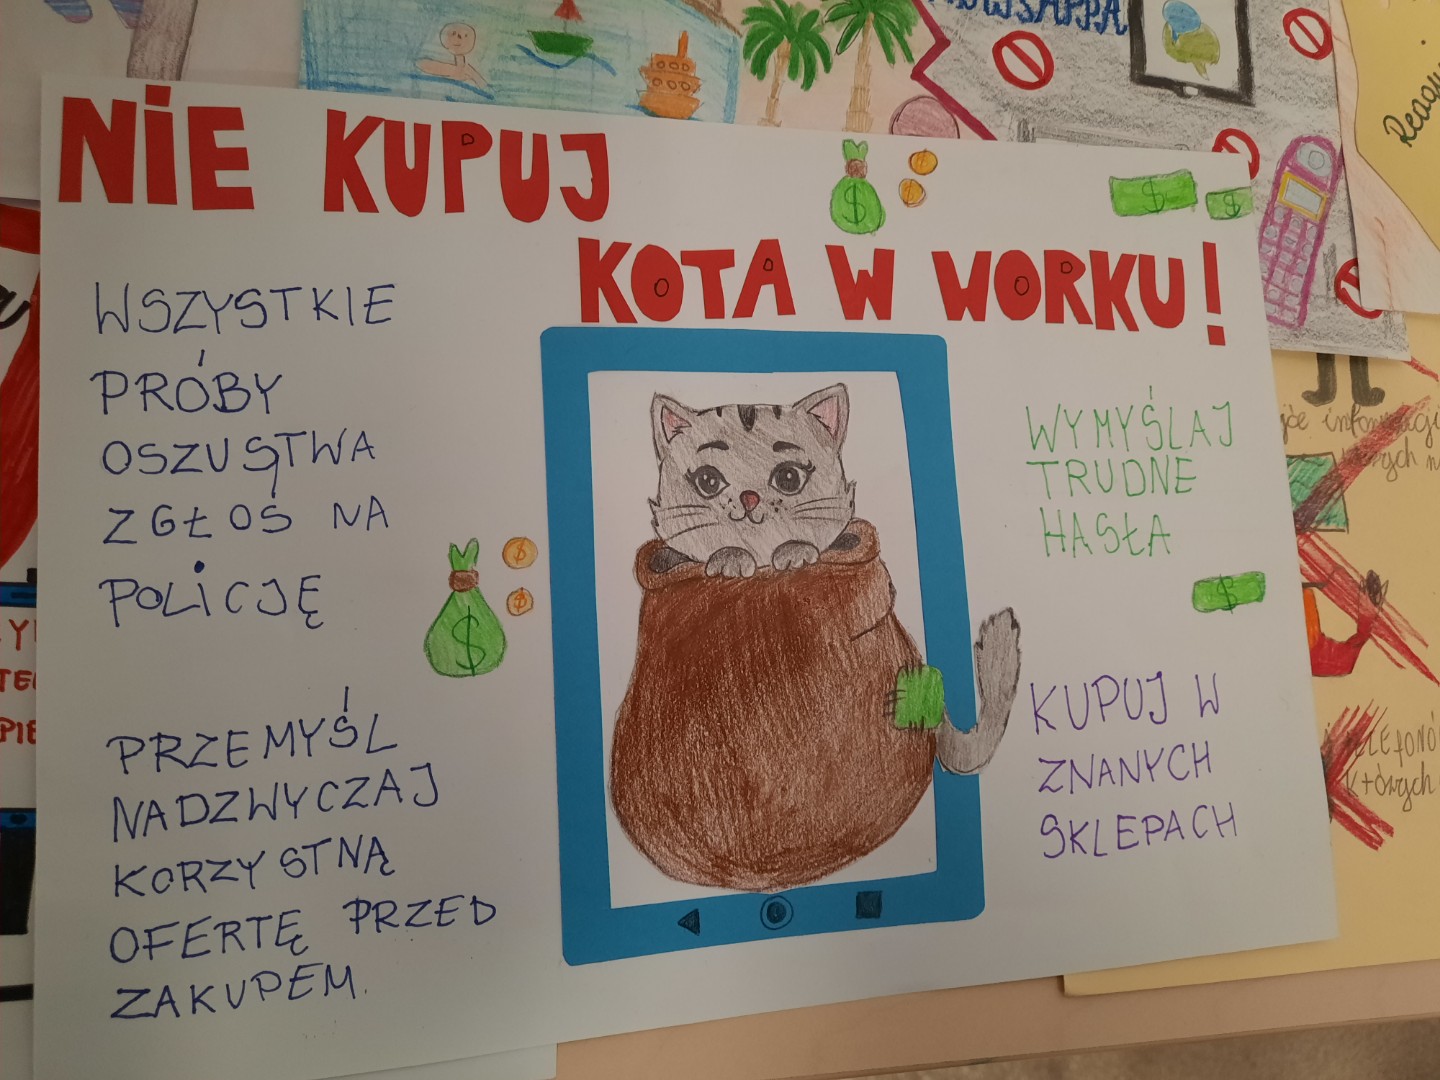 NIE KUPUJ
KOTA W WORKU!
WSZYSTKIE
PRÓBY
OSZUSTWA
ZGŁOŚ NA
POLICJĘ
PRZEMYŚL
NADZWYCZAJ
KORZYSTNĄ
OFERTĘ PRZED
ZAKUPEM.
WYMYŚLAJ
TRUDNE
HASŁA
KUPUJ W
ZNANYCH
SKLEPACH
$
$
$
$
$
$
$
których